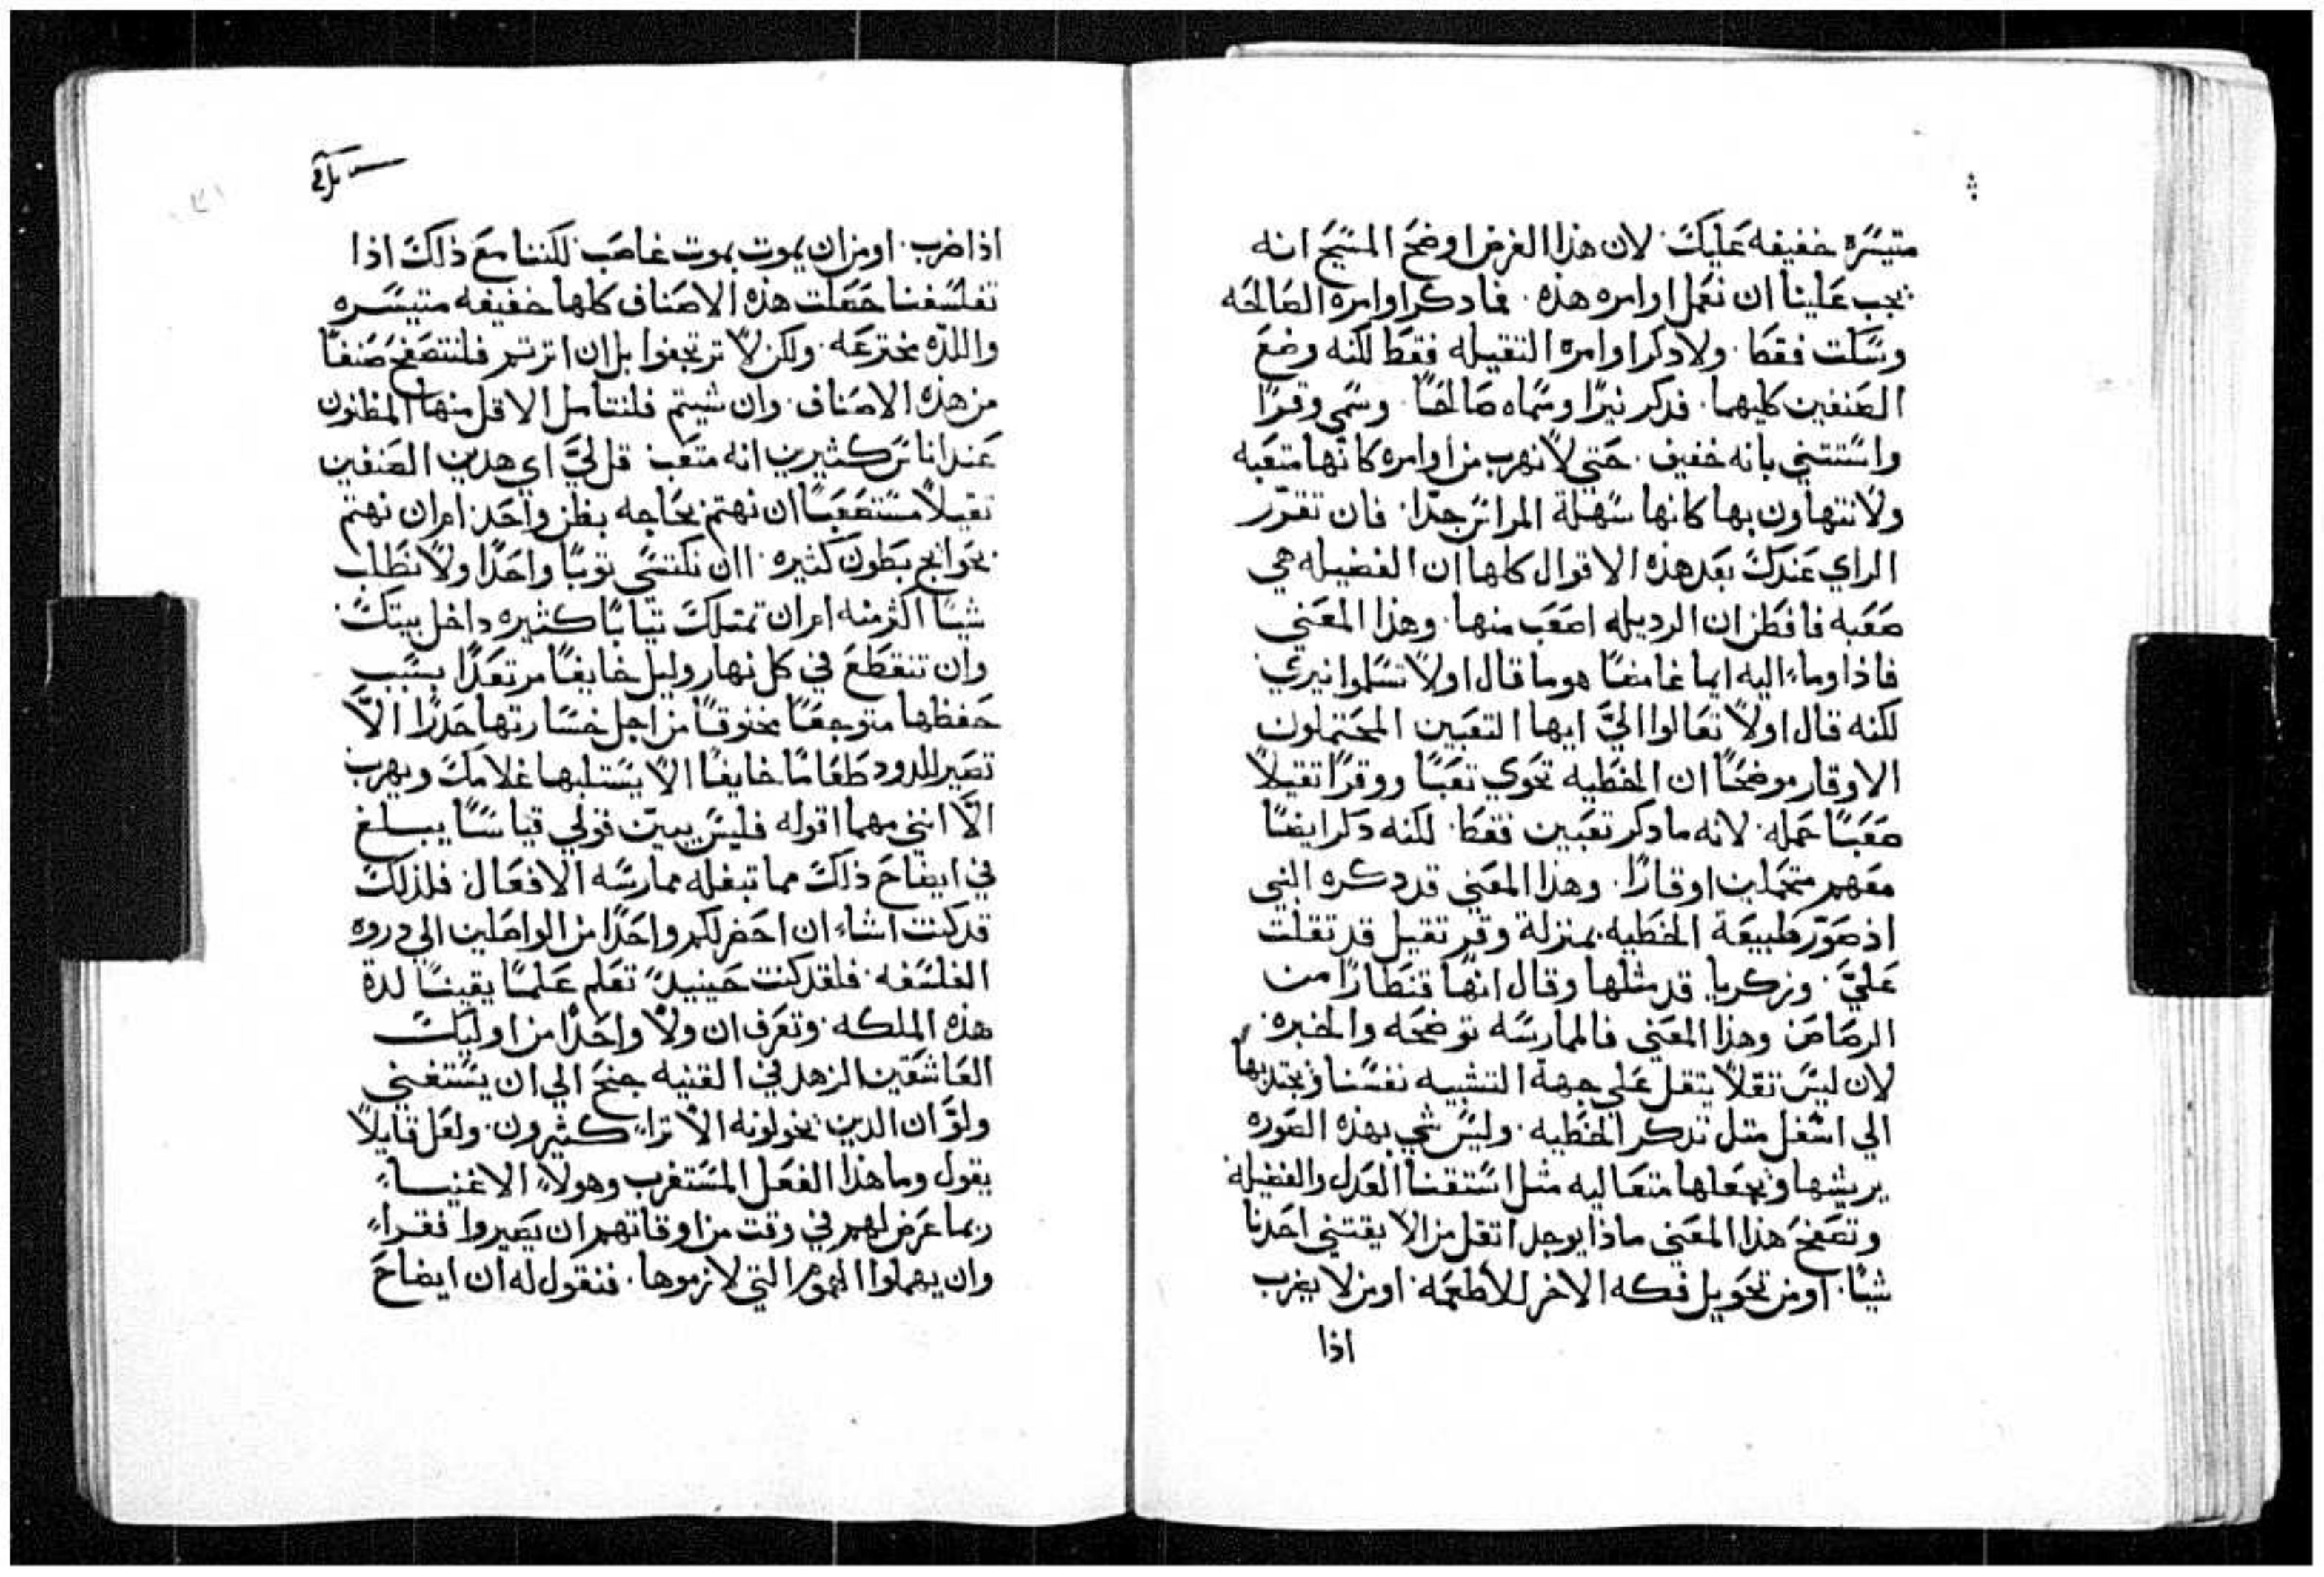 متيسره خفيفه عليك. لان هذا الغرض اوضح المسيح انه
يجب علينا ان نعمل اوامره هذه. فما دكر اوامره الصالحه
وسكت فقط. ولا دكر اوامره التقيله فقط لكنه وضع
الصنفين كليهما. فدكر نيرًا وسماه صالحًا. وسمي وقرًا
واستتني بانه خفيف. حتي لا نهرب من اوامره كانها متعبه
ولا نتهاون بها كانها سهلة المراس جدًا. فان تقرر
الراي عندك بعد هذه الاقوال كلها ان الفضيله هي
صعبه فافطن ان الرديله اصعب منها. وهذا المعني
فاذا وماء اليه ايما غامضًا هو ما قال اولًا تسلموا نيري
لكنه قال اولًا تعالوا اليَّ ايها التعبين المحتملون
الاوقار موضحًا ان الخطيه تحوي تعبًا ووقرًا تقيلًا
صعبًا حمله. لانه ما دكر تعبين فقط. لكنه دكر ايضًا
معهم متحملين اوقارًا. وهذا المعني قد دكره النبي
اذ صوّر طبيعة الخطيه بمنزلة وقر تقيل قد تقلت
عليَّ. وزكريا قد مثلها وقال انها قنطارًا من
الرصاص وهذا المعني فالممارسه توضحه والخبره.
لان ليس تقلًا يتقل علي جهة التشبيه نفسنا ويجتدبها
الي اسفل متل تدكر الخطيه. وليس شي بهذه الصوره
يريشها ويجعلها متعاليه مثل استقنا العدل والفضيله
وتصفح هذا المعني ماذا يوجد اتقل من الا يقتني احدنا
شيًا. او من تحويل فكه الاخر للاطعمه. او من لا يضرب
اذا
اذا ضرب. او من ان يموت بموت غاصب لكننا مع ذلك اذا
تفلسفنا حصلت هذه الاصناف كلها خفيفه متيسره
واللذه مخترعه. ولكن لا ترتجفوا بل ان اترتم فلنتصفح صنفًا
من هذه الاصناف. وان شيتم فلنتامل الاقل منها المظنون
عند اناس كثيرين انه متعب قل ليَّ اي هدين الصنفين
تقيلًا مستصعبًا ان نهتم بحاجه بطن واحد ام ان نهتم
بحوايج بطون كثيره. اان نكتسي توبًا واحدًا ولا نطلب
شيًا اكثر منه ام ان تمتلك تيابًا كثيره داخل بيتك
وان تنقطع في كل نهار وليل خايفًا مرتعدًا بسبب
حفظها متوجعًا مخنوقًا من اجل خسارتها حدرًا الَّا
تصير للدود طعامًا خايفًا الا يستلبها غلامك ويهرب
الَّا انني مهما اقوله فليس يبين قولي قياسًا يبلغ
في ايضاح ذلك مما تبغله ممارسه الافعال. فلذلك
قد كنت اشاء ان احضر لكم واحدًا من الواصلين الي دروه
الفلسفه. فلقد كنت حينيدٍ تعلم علمًا يقينًا لدة
هذه الملكه. وتعرف ان ولا واحدًا من اوليك
العاشقين الزهد في القنيه جنح الي ان يستغني
ولو ان الدين يخولونه الاتراء كثيرون. ولعل قايلًا
يقول وما هذا الفعل المستغرب وهولاء الاغنياء
ربما عرض لهم في وقت من اوقاتهم ان يصيروا فقراء
وان يهملوا الهموم التي لازموها. فنقول له ان ايضاح